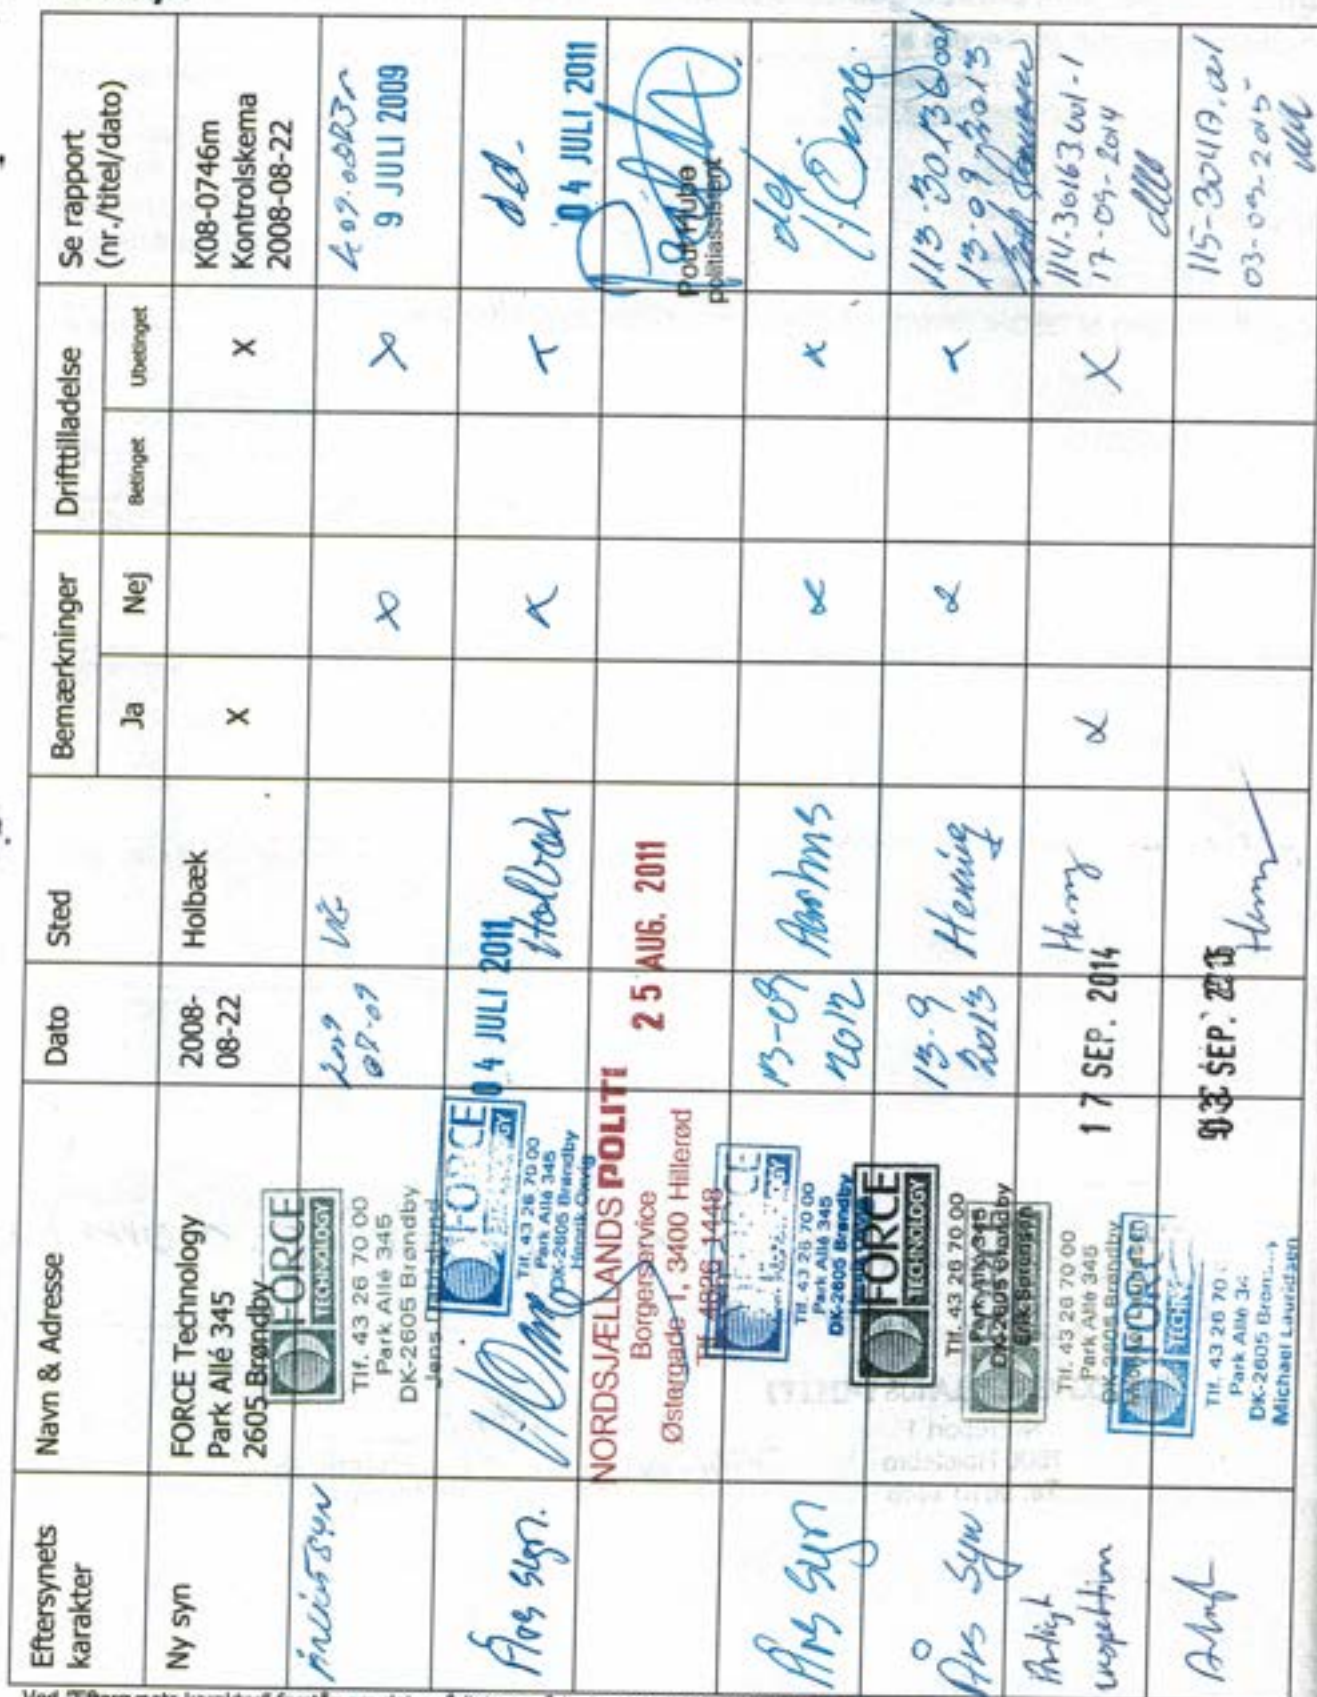 Eftersynets
karakter
Navn & Adresse
Dato
Sted
Bemærkninger
Ja
Nej
Drifttilladelse
Betinget
Ubetinget
Se rapport
(nr./titel/dato)
Ny syn
FORCE Technology
Park Allé 345
2605 Brøndby
2008-
08-22
Holbæk
X
X
K08-0746m
Kontrolskema
2008-08-22
FORCE
TECHNOLOGY
Tlf. 43 26 70 00
Park Allé 345
DK-2605 Brøndby
Jens
2009
X
X
9 JULI 2009
Års syn.
FORCE
Tlf. 43 26 70 00
Park Allé 345
DK-2605 Brøndby
Henrik
04 JULI 2011
Holbæk
x
x
dd.
04 JULI 2011
NORDSJÆLLANDS POLITI
Borgerservice
Østergade 1, 3400 Hillerød
Tlf. 4826 1448
25 AUG. 2011
politiassistent
Års syn
Tlf. 43 26 70 00
Park Allé 345
DK-2605 Brøndby
13-09
2012
Aarhus
x
x
Års Syn
FORCE
TECHNOLOGY
Tlf. 43 26 70 00
Park Allé 345
DK-2605 Brøndby
Erik Sørensen
13.9
2013
Herning
x
x
13-09-2013
Årligt
inspektion
Tlf. 43 26 70 00
Park Allé 345
DK-2605 Brøndby
17 SEP. 2014
x
X
17-09-2014
FORCE
Tlf. 43 26 70
Park Allé 34
DK-2605 Brøn
Michael Lauridsen
SEP.
03-09-2015